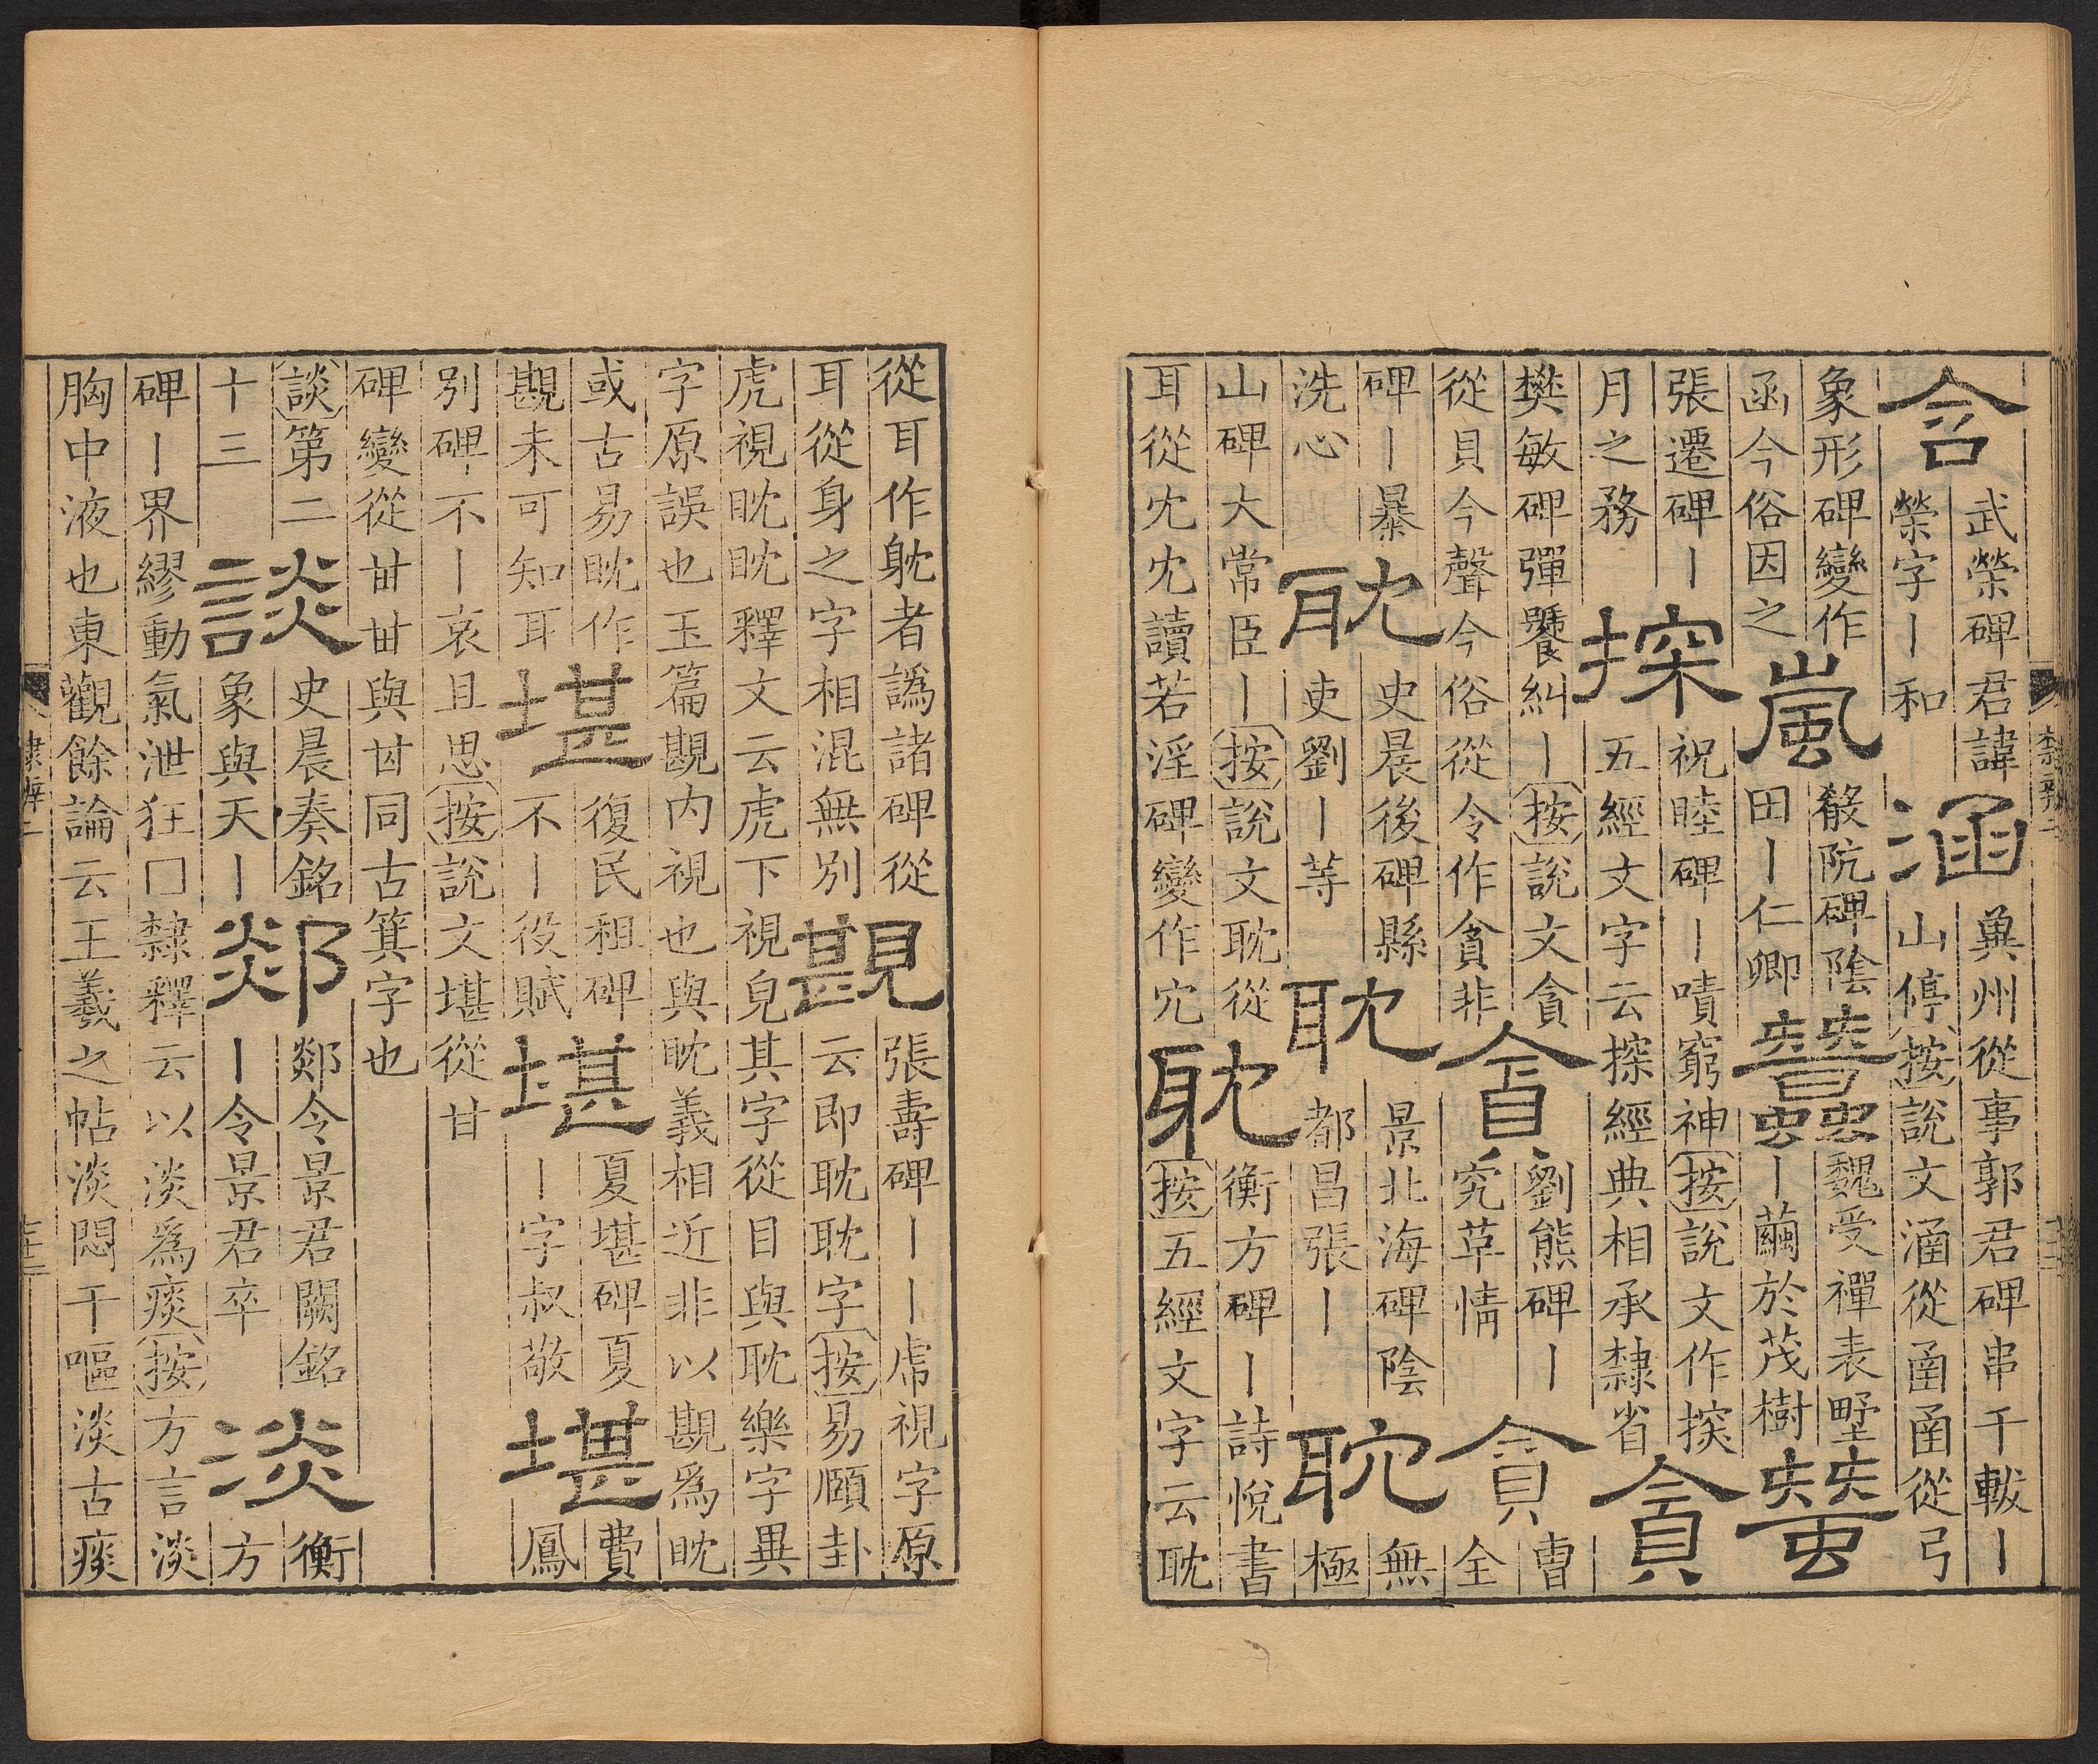 含
武榮碑君諱
榮字丨和
涵
冀州從事郭君碑串千軷丨
山停按說文涵從圅圅從弓
象形碑變作
函今俗因之
嵐
殽阬碑陰
田丨仁卿
蠶
魏受禪表墅
丨繭於茂樹
蠶
張遷碑丨
月之務
探
祝睦碑丨嘖窮神按說文作㨒
五經文字云探經典相承隸省
貪
樊敏碑彈饕糾丨按說文貪
從貝今聲今俗從令作貪非
貪
劉熊碑丨
究草情
貪
曹全
碑丨暴
洗心
耽
史晨後碑縣
吏劉丨等
耽
景北海碑陰
都昌張丨
耽
無極
山碑大常臣丨按說文耽從
耳從冘冘讀若淫碑變作冗
耽
衡方碑丨詩悅書
按五經文字云耽
隸辨二
從耳作躭者譌諸碑從
耳從身之字相混無別
䚔
張壽碑丨丨虎視字原
云即耽耽字按易頤卦
虎視眈眈釋文云虎下視皃其字從目與耽樂字異
字原誤也玉篇䚔内視也與眈義相近非以䚔爲眈
或古易眈作
䚔未可知耳
堪
復民租碑
不丨役賦
堪
夏堪碑夏
丨字叔敬
堪
費鳳
別碑不丨哀且思按說文堪從甘
碑變從𠀠𠀠與甘同古箕字也
談第二
十三
談
史晨奏銘
象與天丨
郯
郯令景君闕銘
丨令景君卒
淡
衡方
碑丨界繆動氣泄狂囗隸釋云以淡爲痰按方言淡
胸中液也東觀餘論云王羲之帖淡悶干嘔淡古痰
隸辨二